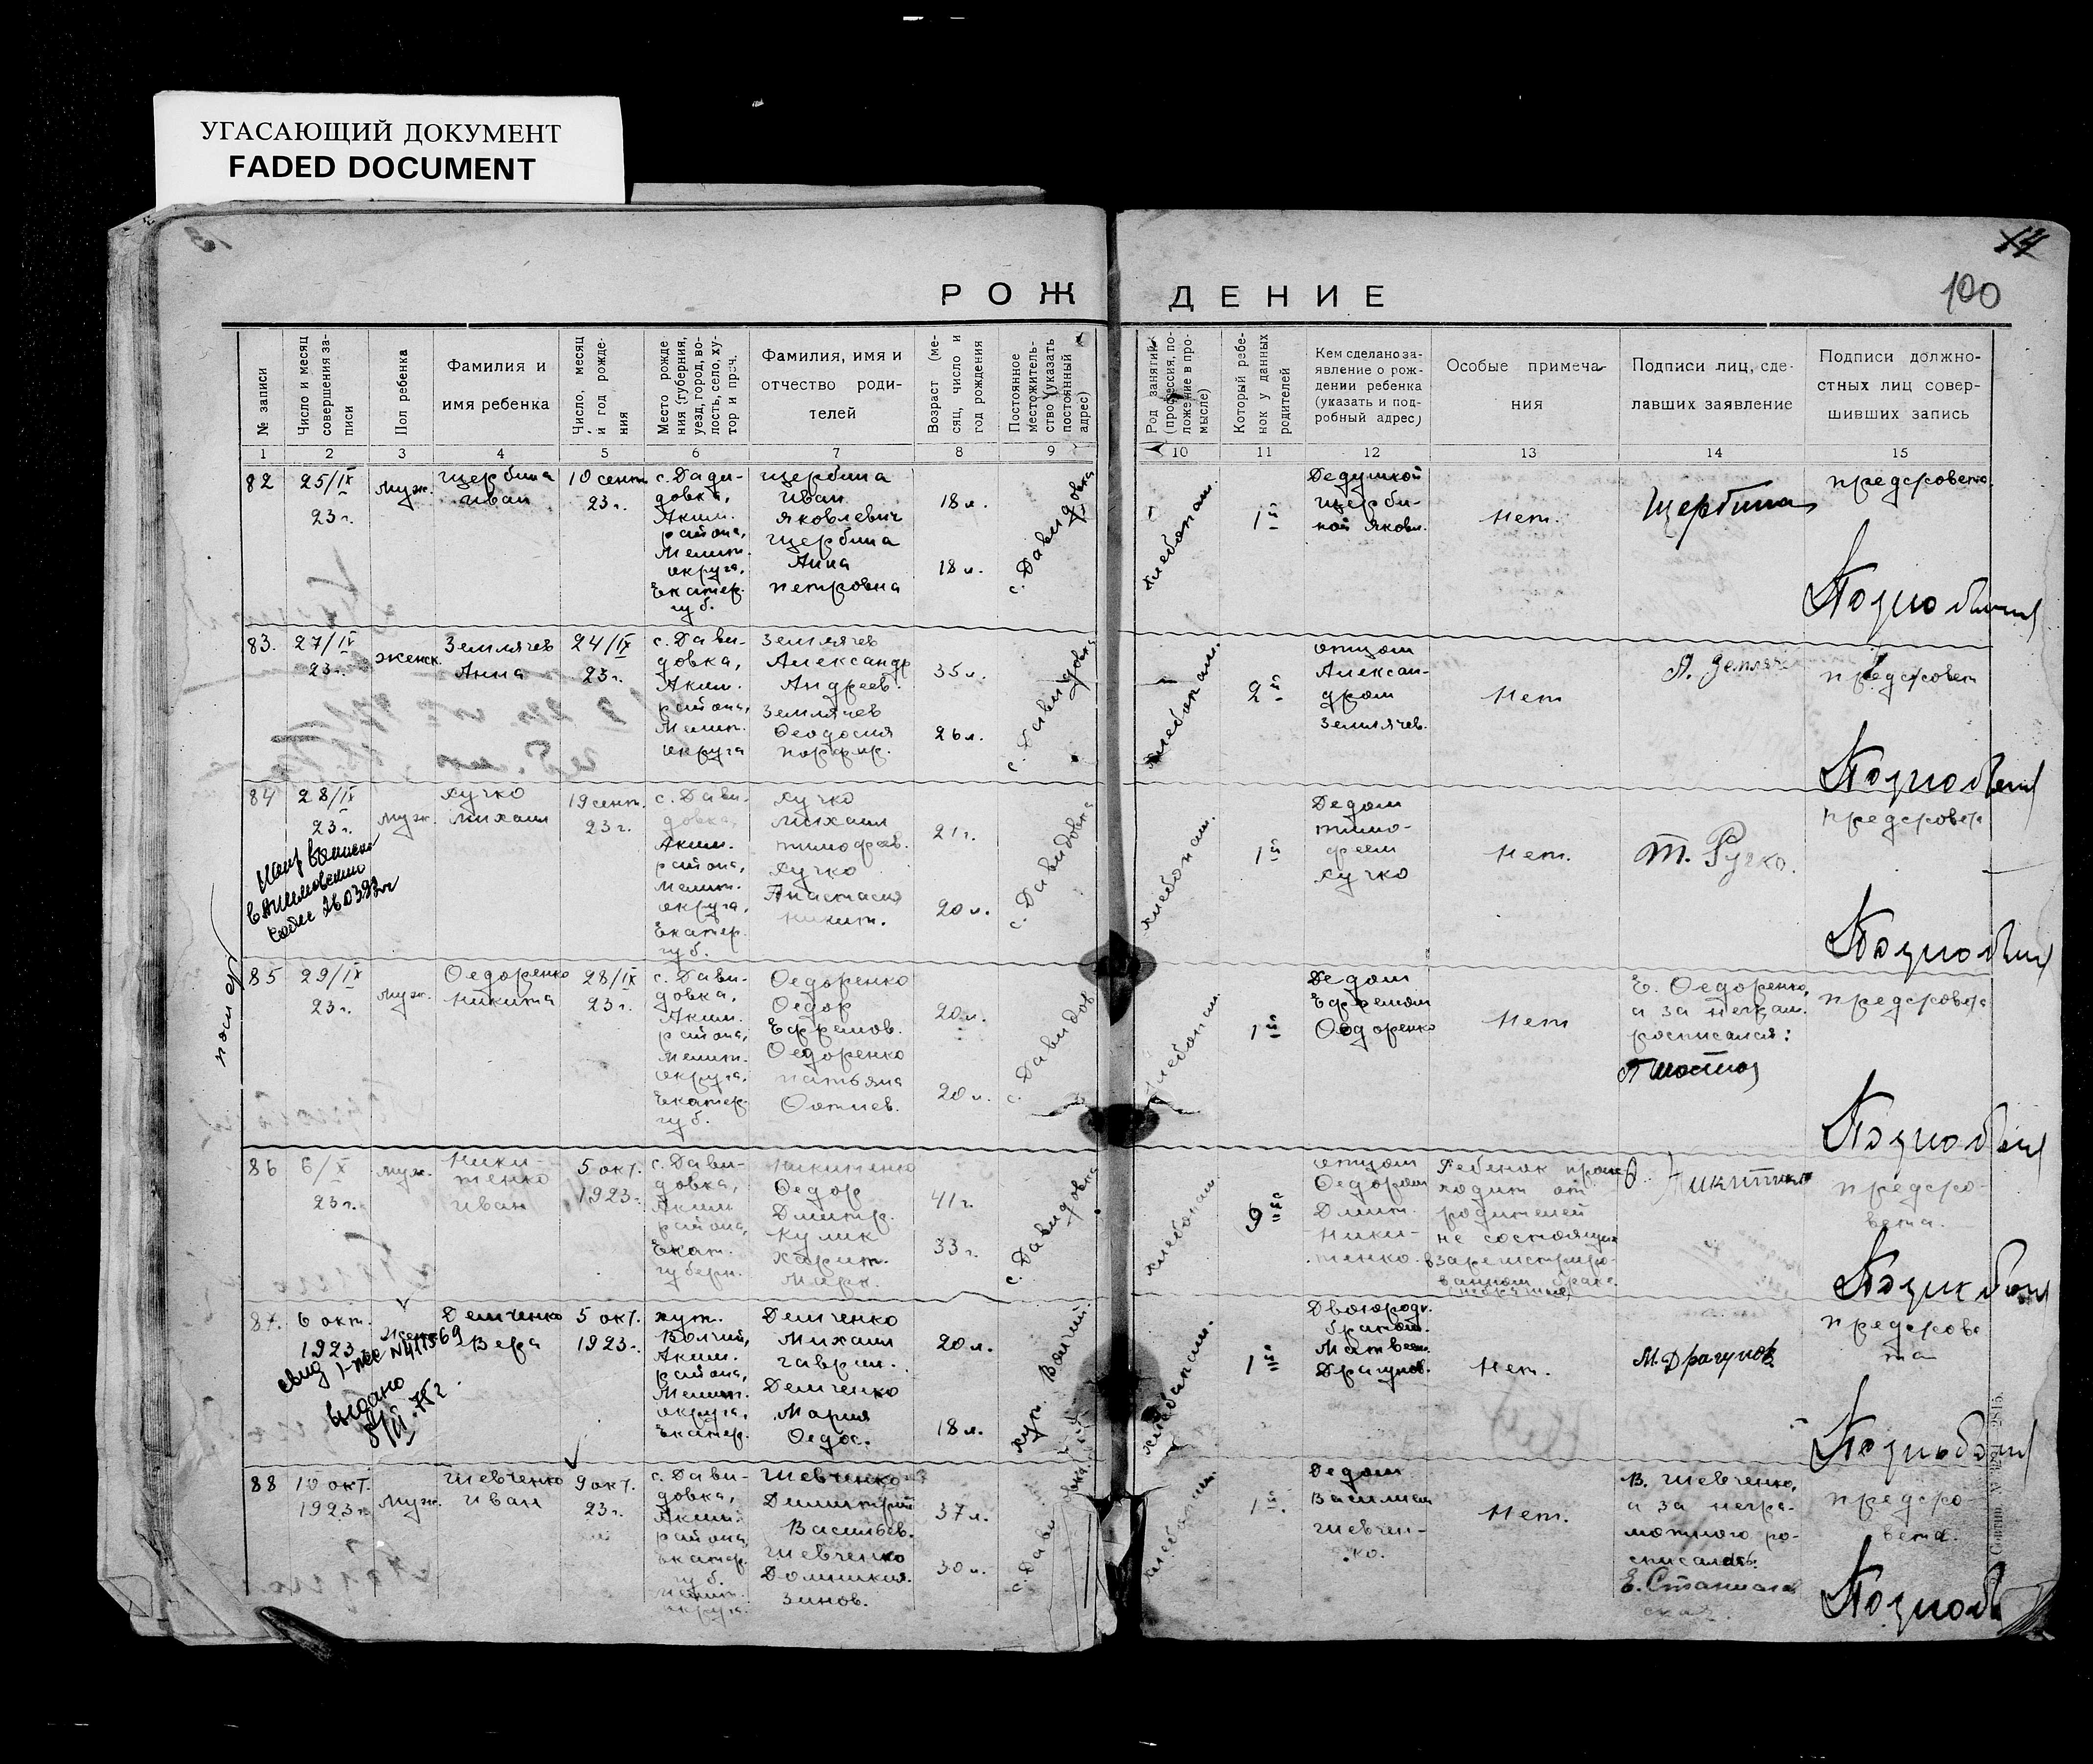 УГАСАЮЩИЙ ДОКУМЕНТ
FADED DOCUMENT
100
РОЖДЕНИЕ
№ записи
Число и месяц совершения записи
Пол ребенка
Фамилия и
имя ребенка
Число, месяц и год рождения
Место рожде
ния (губерния,
уезд, город, во-
лость, село, ху-
тор и проч.
Фамилия, имя и
отчество роди-
телей
Возраст (месяц, число и год рождения
Постоянное местожительство (указать постоянный адрес)
Род занятий (профессия, положение в промысле)
Который ребенок у данных родителей
Кем сделано за-
явление о рож-
дении ребенка
(указать и под-
робный адрес)
Особые примеча-
ния
Подписи лиц, сде-
лавших заявление
Подписи должно-
стных лиц совер-
шивших запись
1 2 3 4 5 6 7 8 9 10 11 12 13 14 15
82
25/IX
23 г.
муж.
Щербина
Иван
10 сент.
23 г.
с. Давидовка,
Аким.
района,
Мелит.
округа,
Екатер.
губ.
Щербина
Иван
Яковлевич
Щербина
Анна
Петровна
18 л.
18 л.
с. Давидовка
хлебопаш.
1й
Дедушкой
Щерби-
ной Яковл.
Нет.
Щербина
предсровета
83.
27/IX
23 г.
женск.
Землячев
Анна
24/IX
23 г.
с. Дави-
довка,
Аким.
района,
Мелит.
округа
Землячев
Александр
Андреев.
Землячев
Феодосия
Порфир.
35 л.
26 л.
с. Давидовка
хлебопаш.
2й
отцом
Алексан-
дром
Землячев.
Нет
предсровет
84
28/IX
23 г.
муж.
Кучко
Михаил
19 сент.
23 г.
с. Дави-
довка,
Аким.
района,
Мелит.
округа,
Екатер.
губ.
Кучко
Михаил
Тимофеев.
Кучко
Анастасия
Никит.
21 г.
20 л.
с. Давидовка
хлебопаш.
1й
Дедом
Тимо-
феем
Кучко
Нет.
предсровета
85
29/IX
23 г.
муж.
Федоренко
Никита
28/IX
23 г.
с. Дави-
довка,
Аким.
района,
Мелит.
округа,
Екатер.
губ.
Федоренко
Федор
Ефремов.
Федоренко
Татьяна
20 л.
20 л.
с. Давидов.
хлебопаш.
1й
Дедом
Ефремом
Федоренко
Нет
Е. Федоренко,
а за неграм.
росписался:
предсровета
86
6/X
23 г.
муж.
Ники-
тенко
Иван
5 окт.
1923 г.
с. Дави-
довка,
Аким.
района,
Екат.
губерн.
Никитенко
Федор
Дмитр.
Кулик
Харит.
Марк.
41 г.
33 г.
с. Давидовка
хлебопаш.
9й
отцом
Федором
Дмит.
Ники-
тенко.
Ребенок проис
ходит от
родителей
не состоящих
в зарегистриро-
ванном браке.
Никитенко
предсро-
вета.
87.
6 окт.
1923
Демченко
Вера
5 окт.
1923 г.
хут.
Волчий,
Аким.
района,
Мелит.
округа,
Екатер.
Демченко
Михаил
Гаврил.
Демченко
Мария
Федос.
20 л.
18 л.
хут. Волчий.
хлебопаш.
1й
Двоюродн.
братом.
Матвеем
Драгунов.
Нет.
М. Драгунов
предсрове
та
выдано
88
10 окт.
1923 г.
муж.
Шевченко
Иван
9 окт.
23 г.
с. Дави-
довка,
Аким.
района,
Екатер.
губ.
Мелит.
округа.
Шевченко
Димитрий
Васильев.
Шевченко
Домникия.
Зинов.
37 л.
30 л.
с. Давидовка.
хлебопаш.
1й.
Дедом
Василием
Шевчен-
ко.
Нет.
В. Шевченко,
а за негра-
мотного ро-
списалась:
предсро-
вета.